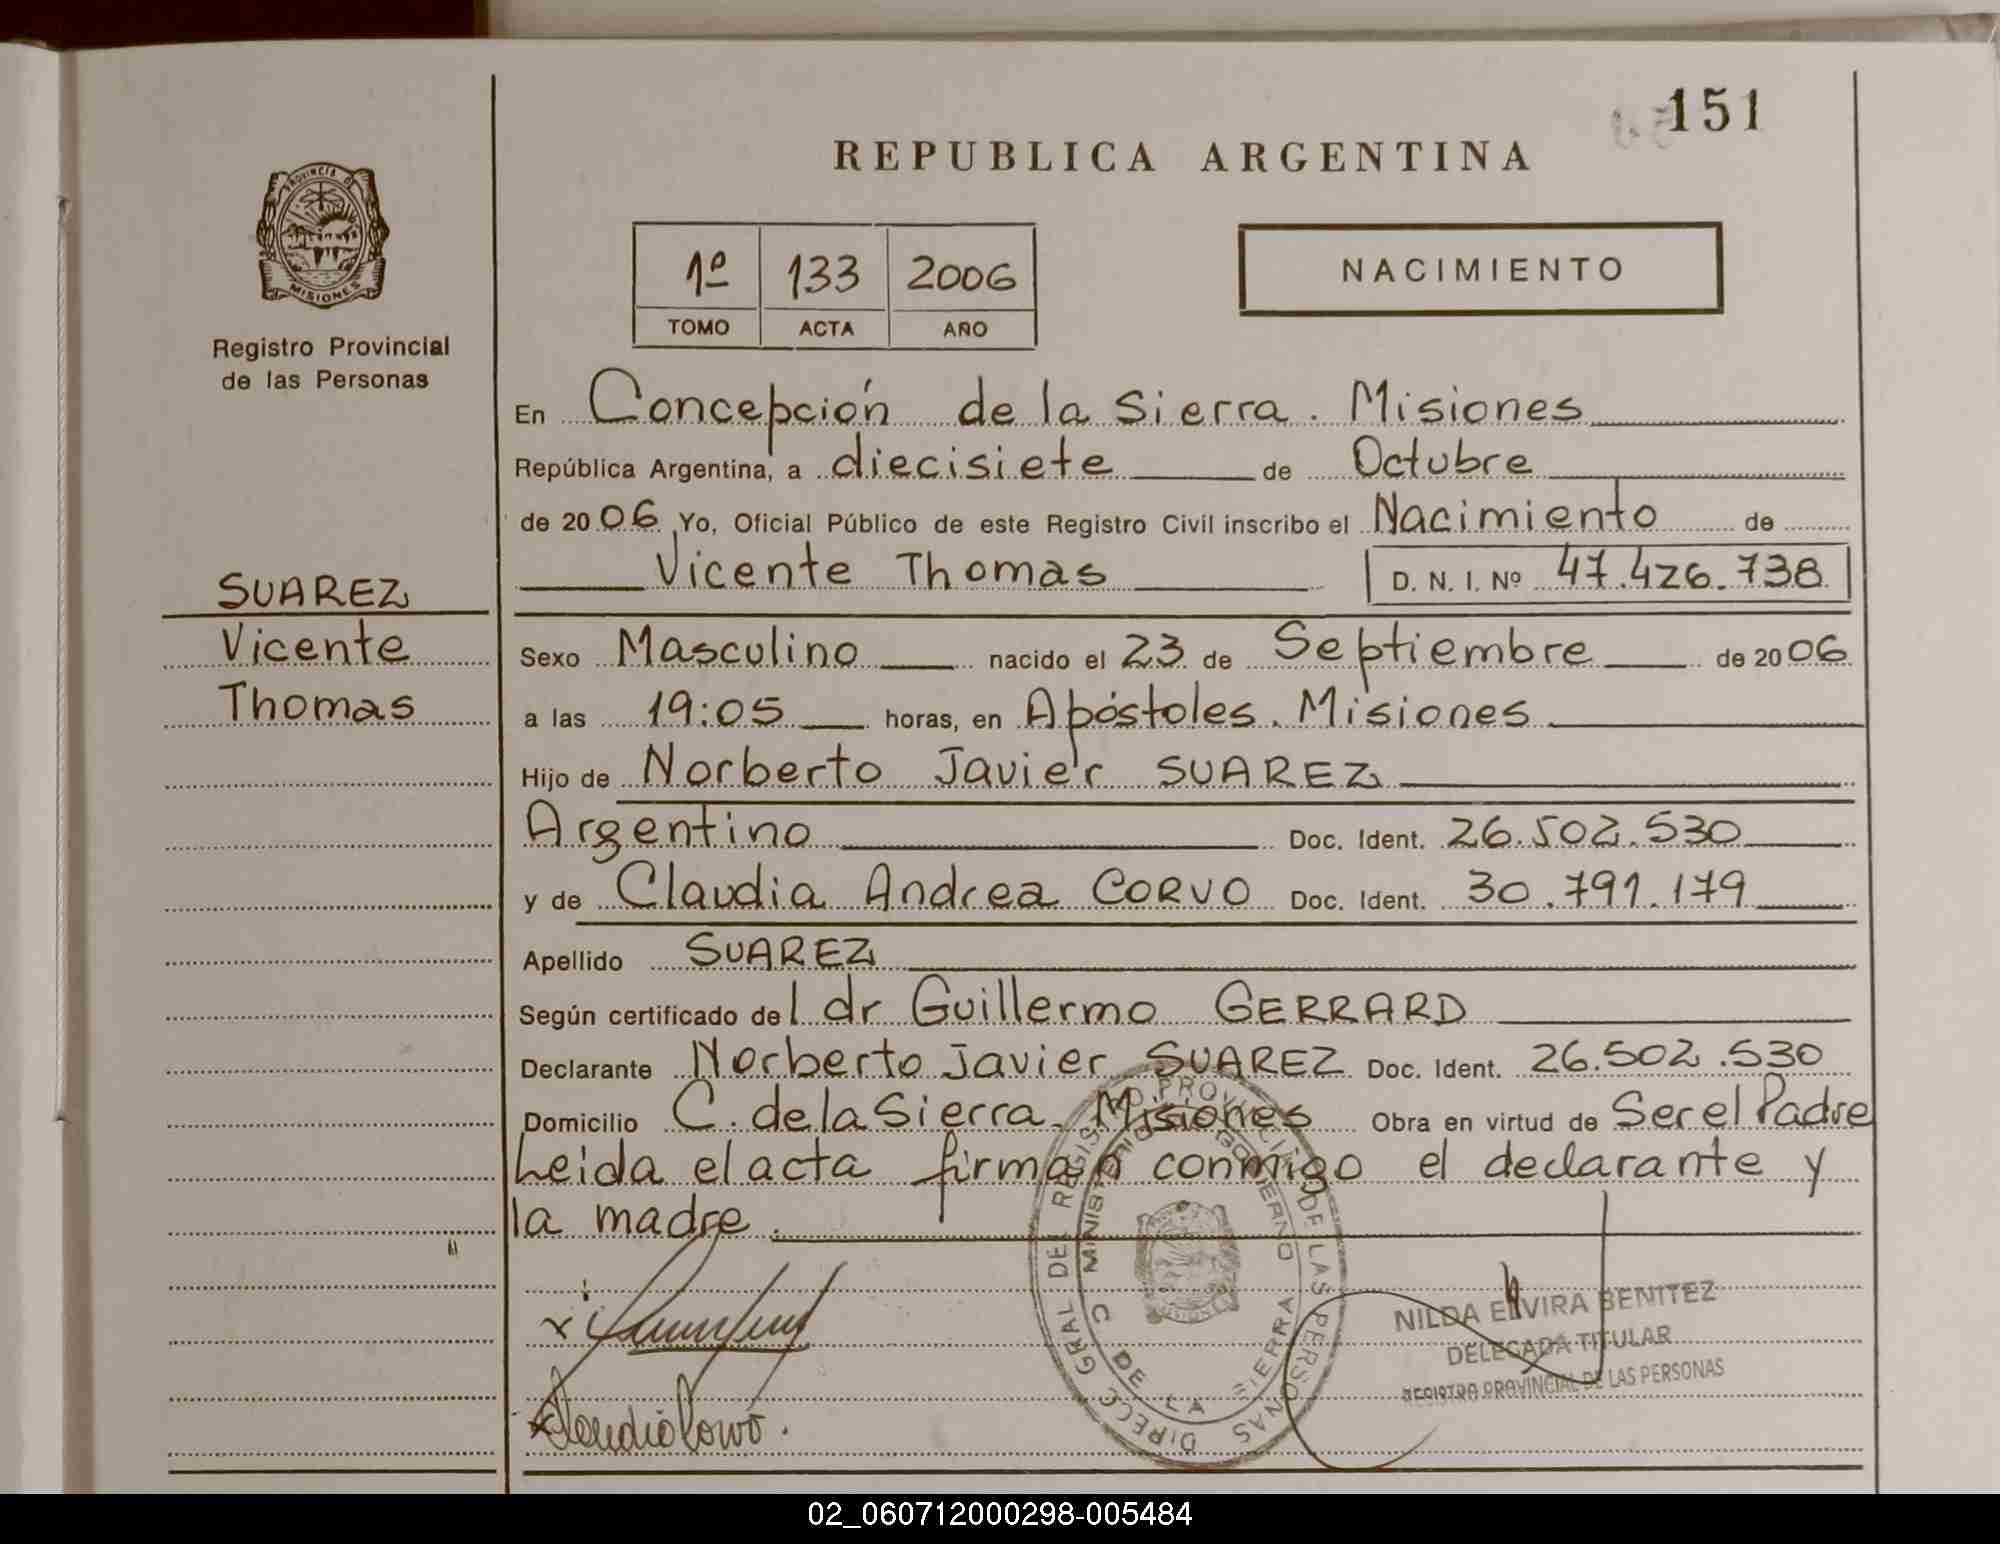 151
REPUBLICA ARGENTINA
PROVINCIA DE
MISIONES
Registro Provincial
de las Personas
1º 133 2006
TOMO ACTA AÑO
NACIMIENTO
En Concepción de la Sierra. Misiones
República Argentina, a diecisiete de Octubre
de 2006 Yo, Oficial Público de este Registro Civil inscribo el Nacimiento de
Vicente Thomas D. N. I. Nº 47.426.738
SUAREZ
Vicente
Thomas
Sexo Masculino nacido el 23 de Septiembre de 2006
a las 19:05 horas, en Apóstoles. Misiones
Hijo de Norberto Javier SUAREZ
Argentino Doc. Ident. 26.502.530
y de Claudia Andrea CORVO Doc. Ident. 30.791.179
Apellido SUAREZ
Según certificado del dr Guillermo GERRARD
Declarante Norberto Javier SUAREZ Doc. Ident. 26.502.530
Domicilio C. de la Sierra. Misiones Obra en virtud de Ser el Padre
Leida el acta firman conmigo el declarante y
la madre.
DIRECC GRAL DEL REGISTRO PROVINCIAL DE LAS PERSONAS
MINISTERIO DE GOBIERNO
C DE LA SIERRA
NILDA ELVIRA BENITEZ
DELEGADA TITULAR
REGISTRO PROVINCIAL DE LAS PERSONAS
02_060712000298-005484